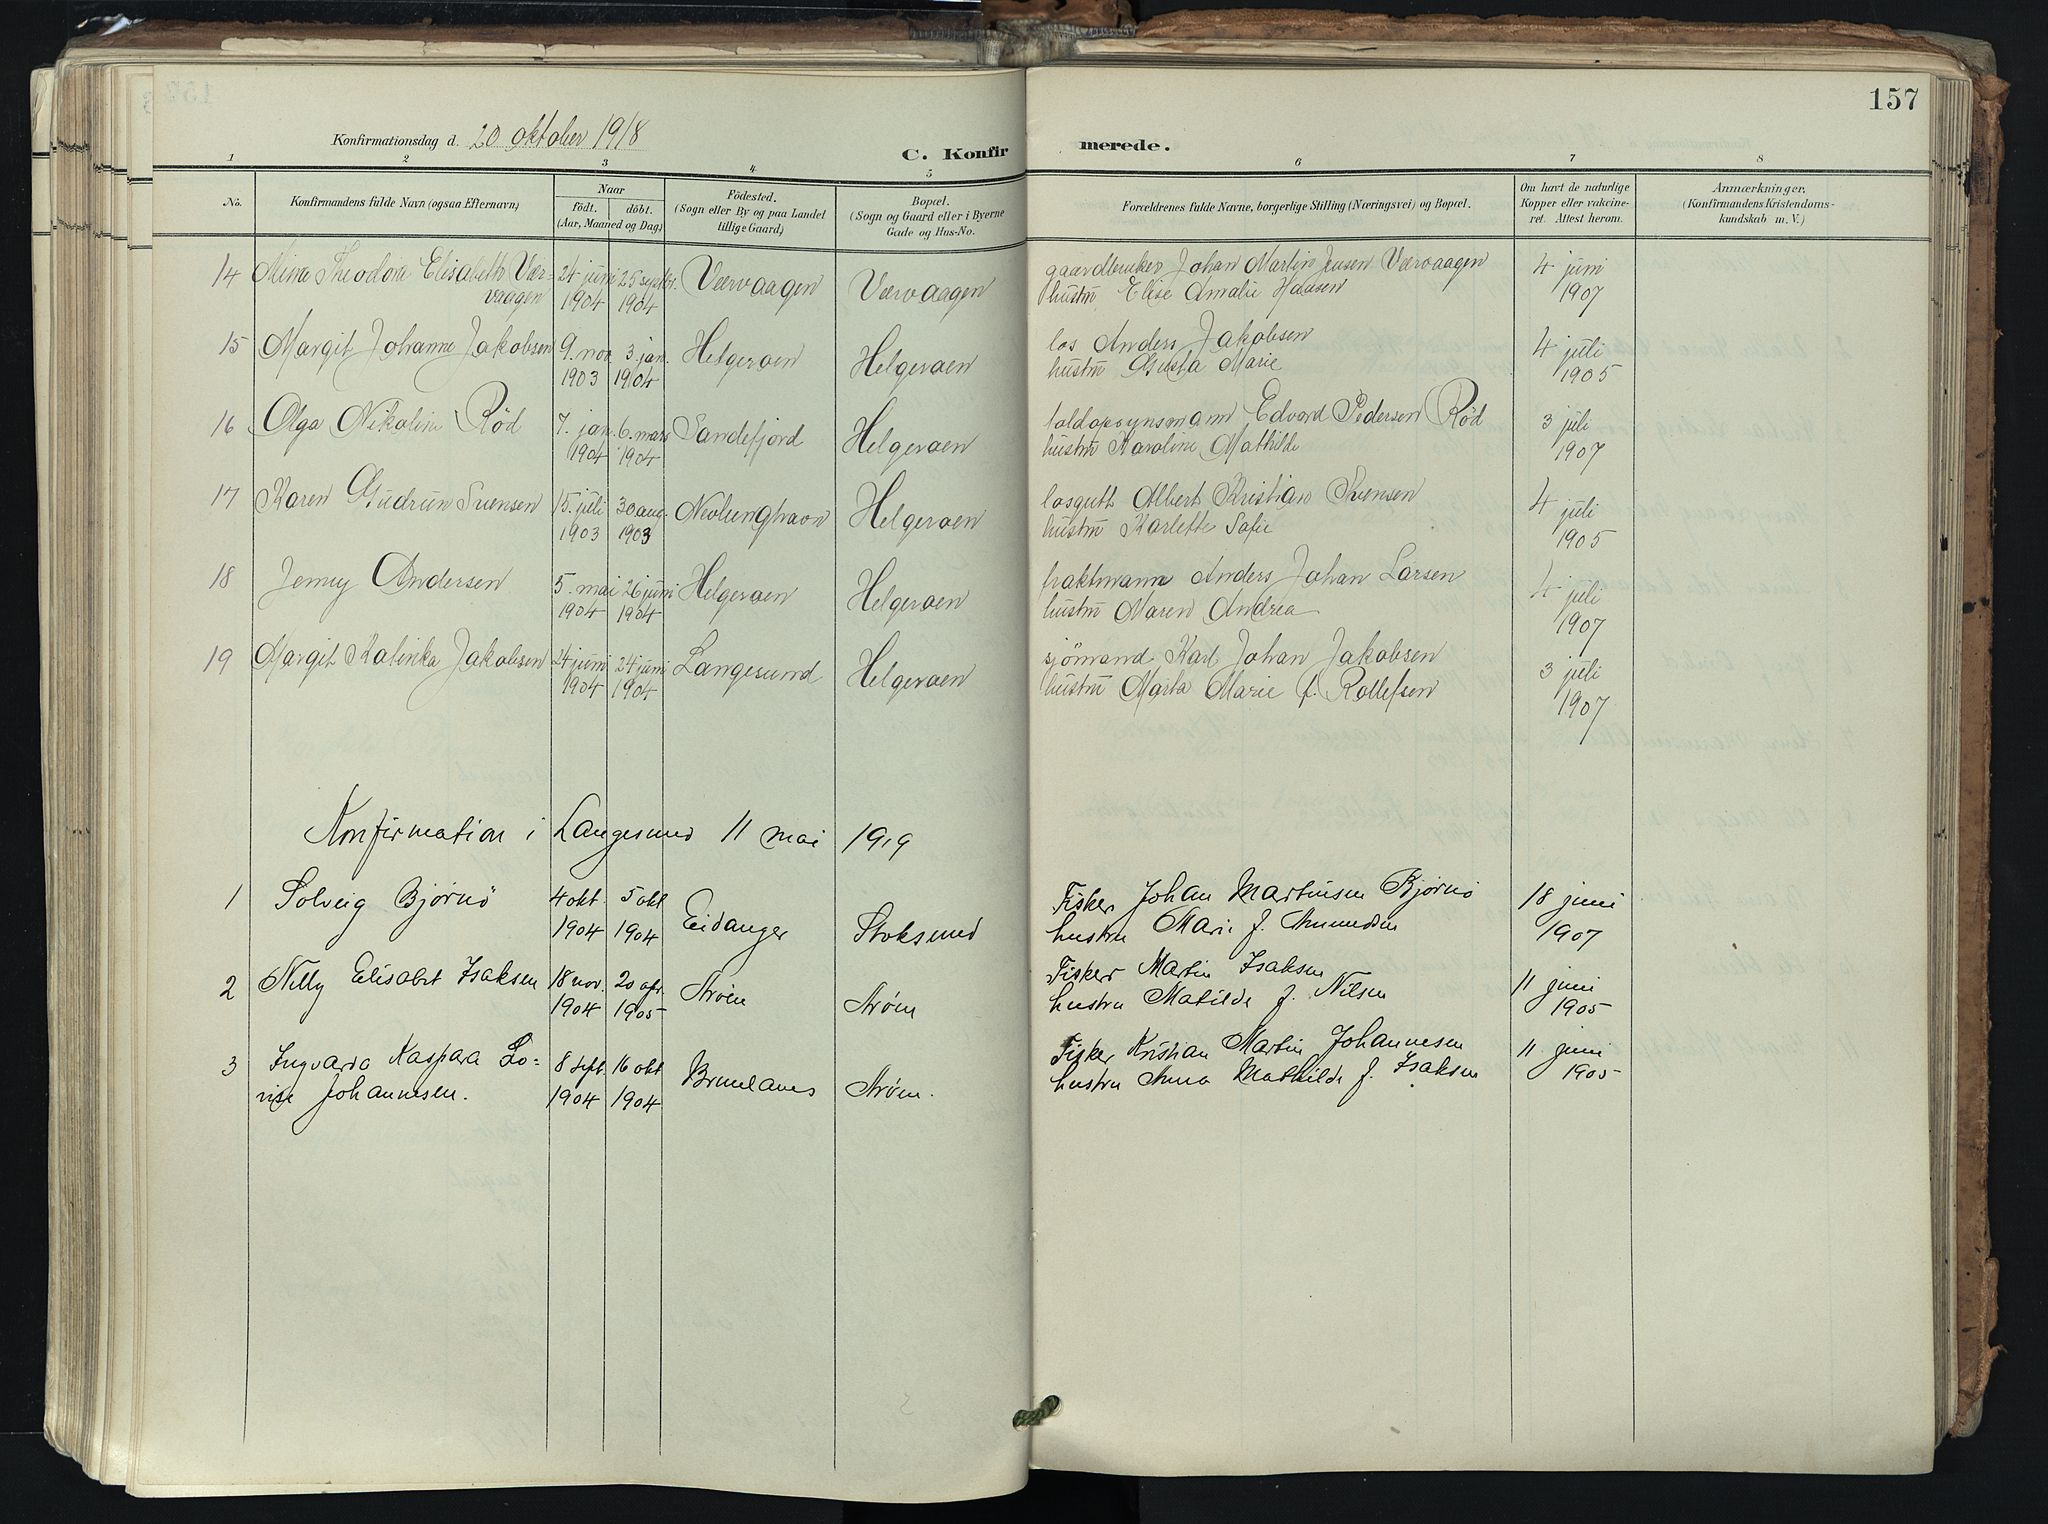 157
Konfirmationsdag d. 20 oktober 1918
C. Konfirmerede.
1 2 3 4 5 6 7 8
No.
Konfirmandens fulde Navn (ogsaa Efternavn)
Naar
födt. döbt.
(Aar, Maaned og Dag)
Födested.
(Sogn eller By og paa Landet
tillige Gaard)
Bopæl.
(Sogn og Gaard eller i Byerne
Gade og Hus-No.
Forældrenes fulde Navne, borgerlige Stilling (Næringsvei) og Bopæl.
Om havt de naturlige
Kopper eller vakcine-
ret. Attest herom.
Anmærkninger.
(Konfirmandens Kristendoms-
kundskab m. V.)
14 Mina Theodora Elisabeth Vær- 24 juni 25 septbr. Værvaagen Værvaagen gaardbruker Johan Martin Jensen Værvaagen 4 juni
vaagen 1904 1904 hustru Elise Amalie Hansen 1907
15 Margit Johanne Jakobsen 9. nov. 3. jan. Helgeroen Helgeroen los Anders Jakobsen 4 juli
1903 1904 hustru Gusta Marie 1905
16 Olga Nikoline Röd 7. jan. 6. mars Sandefjord Helgeroen toldopsynsmann Edvard Pedersen Röd 3 juli
1904 1904 hustru Karoline Mathilde 1907
17 Karen Gudrun Svensen 15. juli 30 aug. Nevlunghavn Helgeroen losgutt Albert Kristian Svensen 4 juli
1903 1903 hustru Karlette Sofie 1905
18 Jenny Andersen 5. mai 26 juni Helgeroen Helgeroen fraktmann Anders Johan Larsen 4 juli
1904 1904 hustru Maren Andrea 1907
19 Margit Kalinka Jakobsen 24 juni 24 juni Langesund Helgeroen sjömand Karl Johan Jakobsen 3 juli
1904 1904 hustru Marta Marie f. Rollefsen 1907
Konfirmation i Langesund 11 mai 1919
1 Solveig Bjørnö 4 okt. 5 okt Eidanger Stoksund Fisker Johan Martinsen Bjørnö 18 juni
1904 1904 hustru Marie f. Amundsen 1907
2 Nilly Elisabet Isaksen 18 nov. 20 apr. Strøm Strøm Fisker Martin Isaksen 11 juni
1904 1905 hustru Matilde f. Nilsen 1905
3 Ingvarda Kaspara Lo- 8 sept. 16 okt Brunlanes Strøm. Fisker Kristian Martin Johannesen 11 juni
vise Johannesen. 1904 1904 hustru Anna Mathilde f. Isaksen 1905